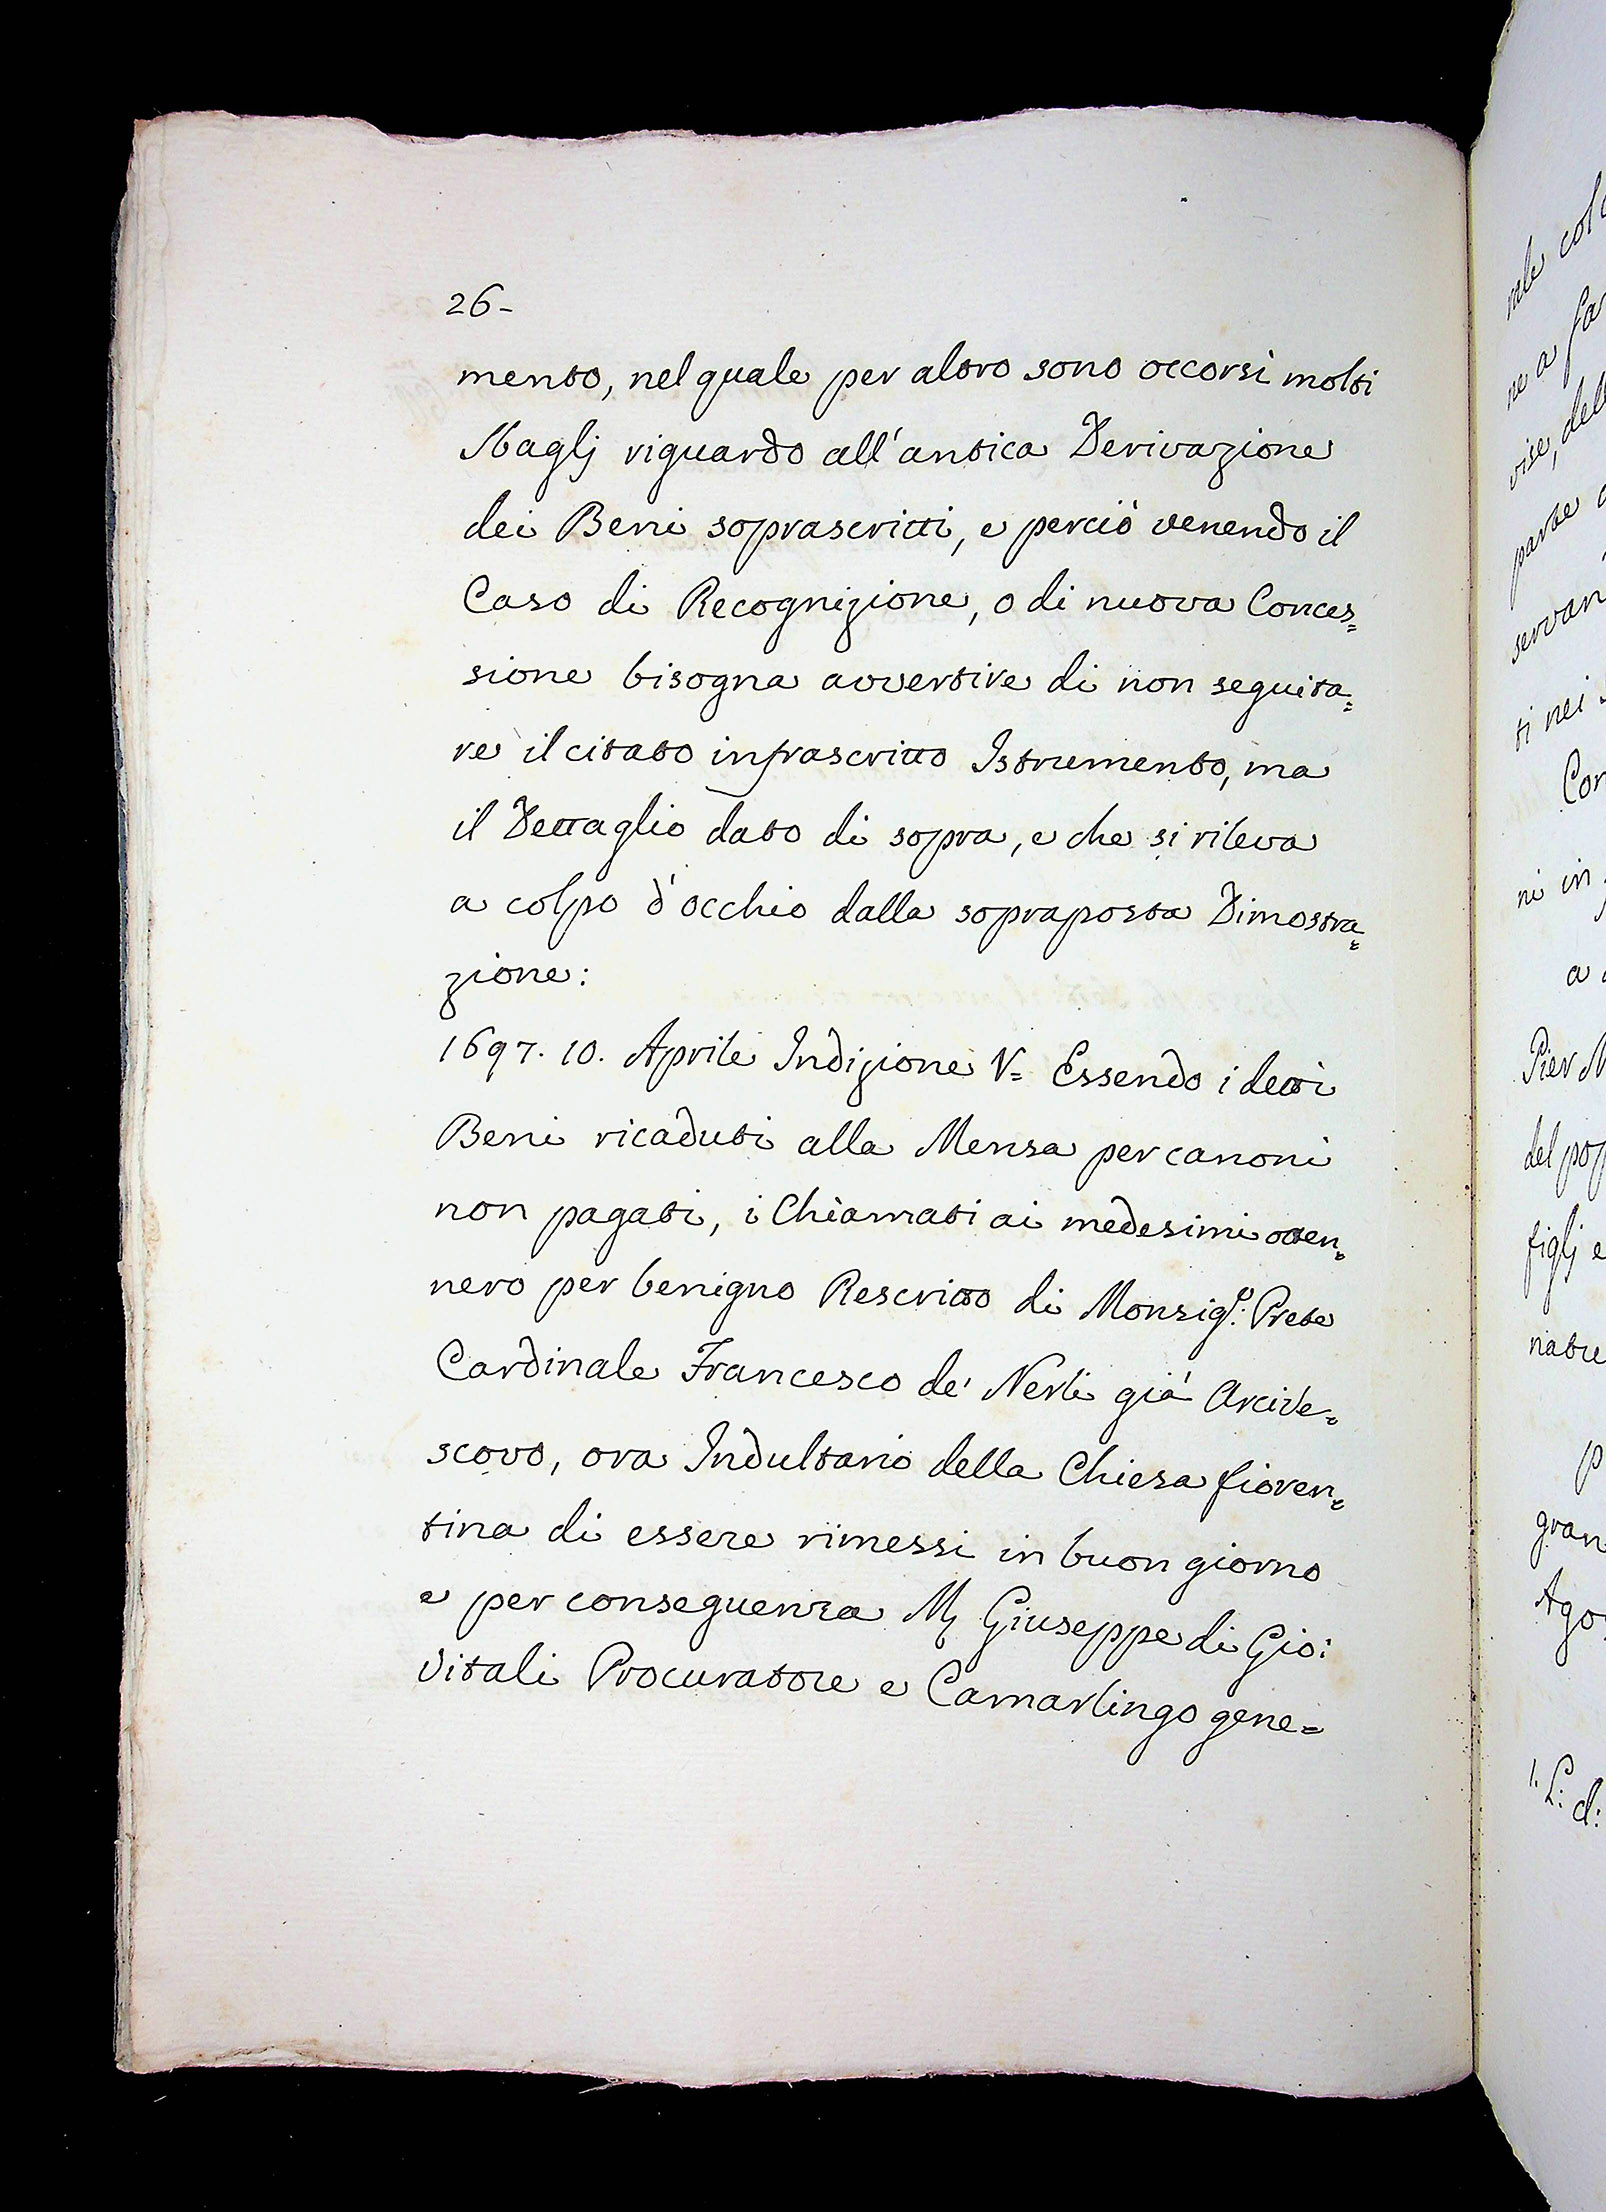 26-
mento, nel quale per altro sono occorsi molti
Sbaglj riguardo all'antica Derivazione
dei Beni soprascritti, e perciò venendo il
Caso di Recognizione, o di nuova Conces=
sione bisogna avvertire di non seguita=
re il citato infrascritto Istrumento, ma
il Dettaglio dato di sopra, e che si rileva
a colpo d'occhio dalla sopraposta Dimostra=
zione:
1697. 10. Aprile Indizione V= Essendo i detti
Beni ricaduti alla Mensa per canoni
non pagati, i Chiamati ai medesimi otten=
nero per benigno Rescritto di Monsig.e Prete
Cardinale Francesco de' Nerli già Arcive=
scovo, ora Indultario della Chiesa fioren=
tina di essere rimessi in buon giorno
e per conseguenza M. Giuseppe di Gio:
Vitali Procuratore e Camarlingo gene=
ne a
vise, dell
parte
servan
ti nei
Con
ni in
a
Pier M
del pop
figlj e
natu
p
gran
Ago
1. L: d: